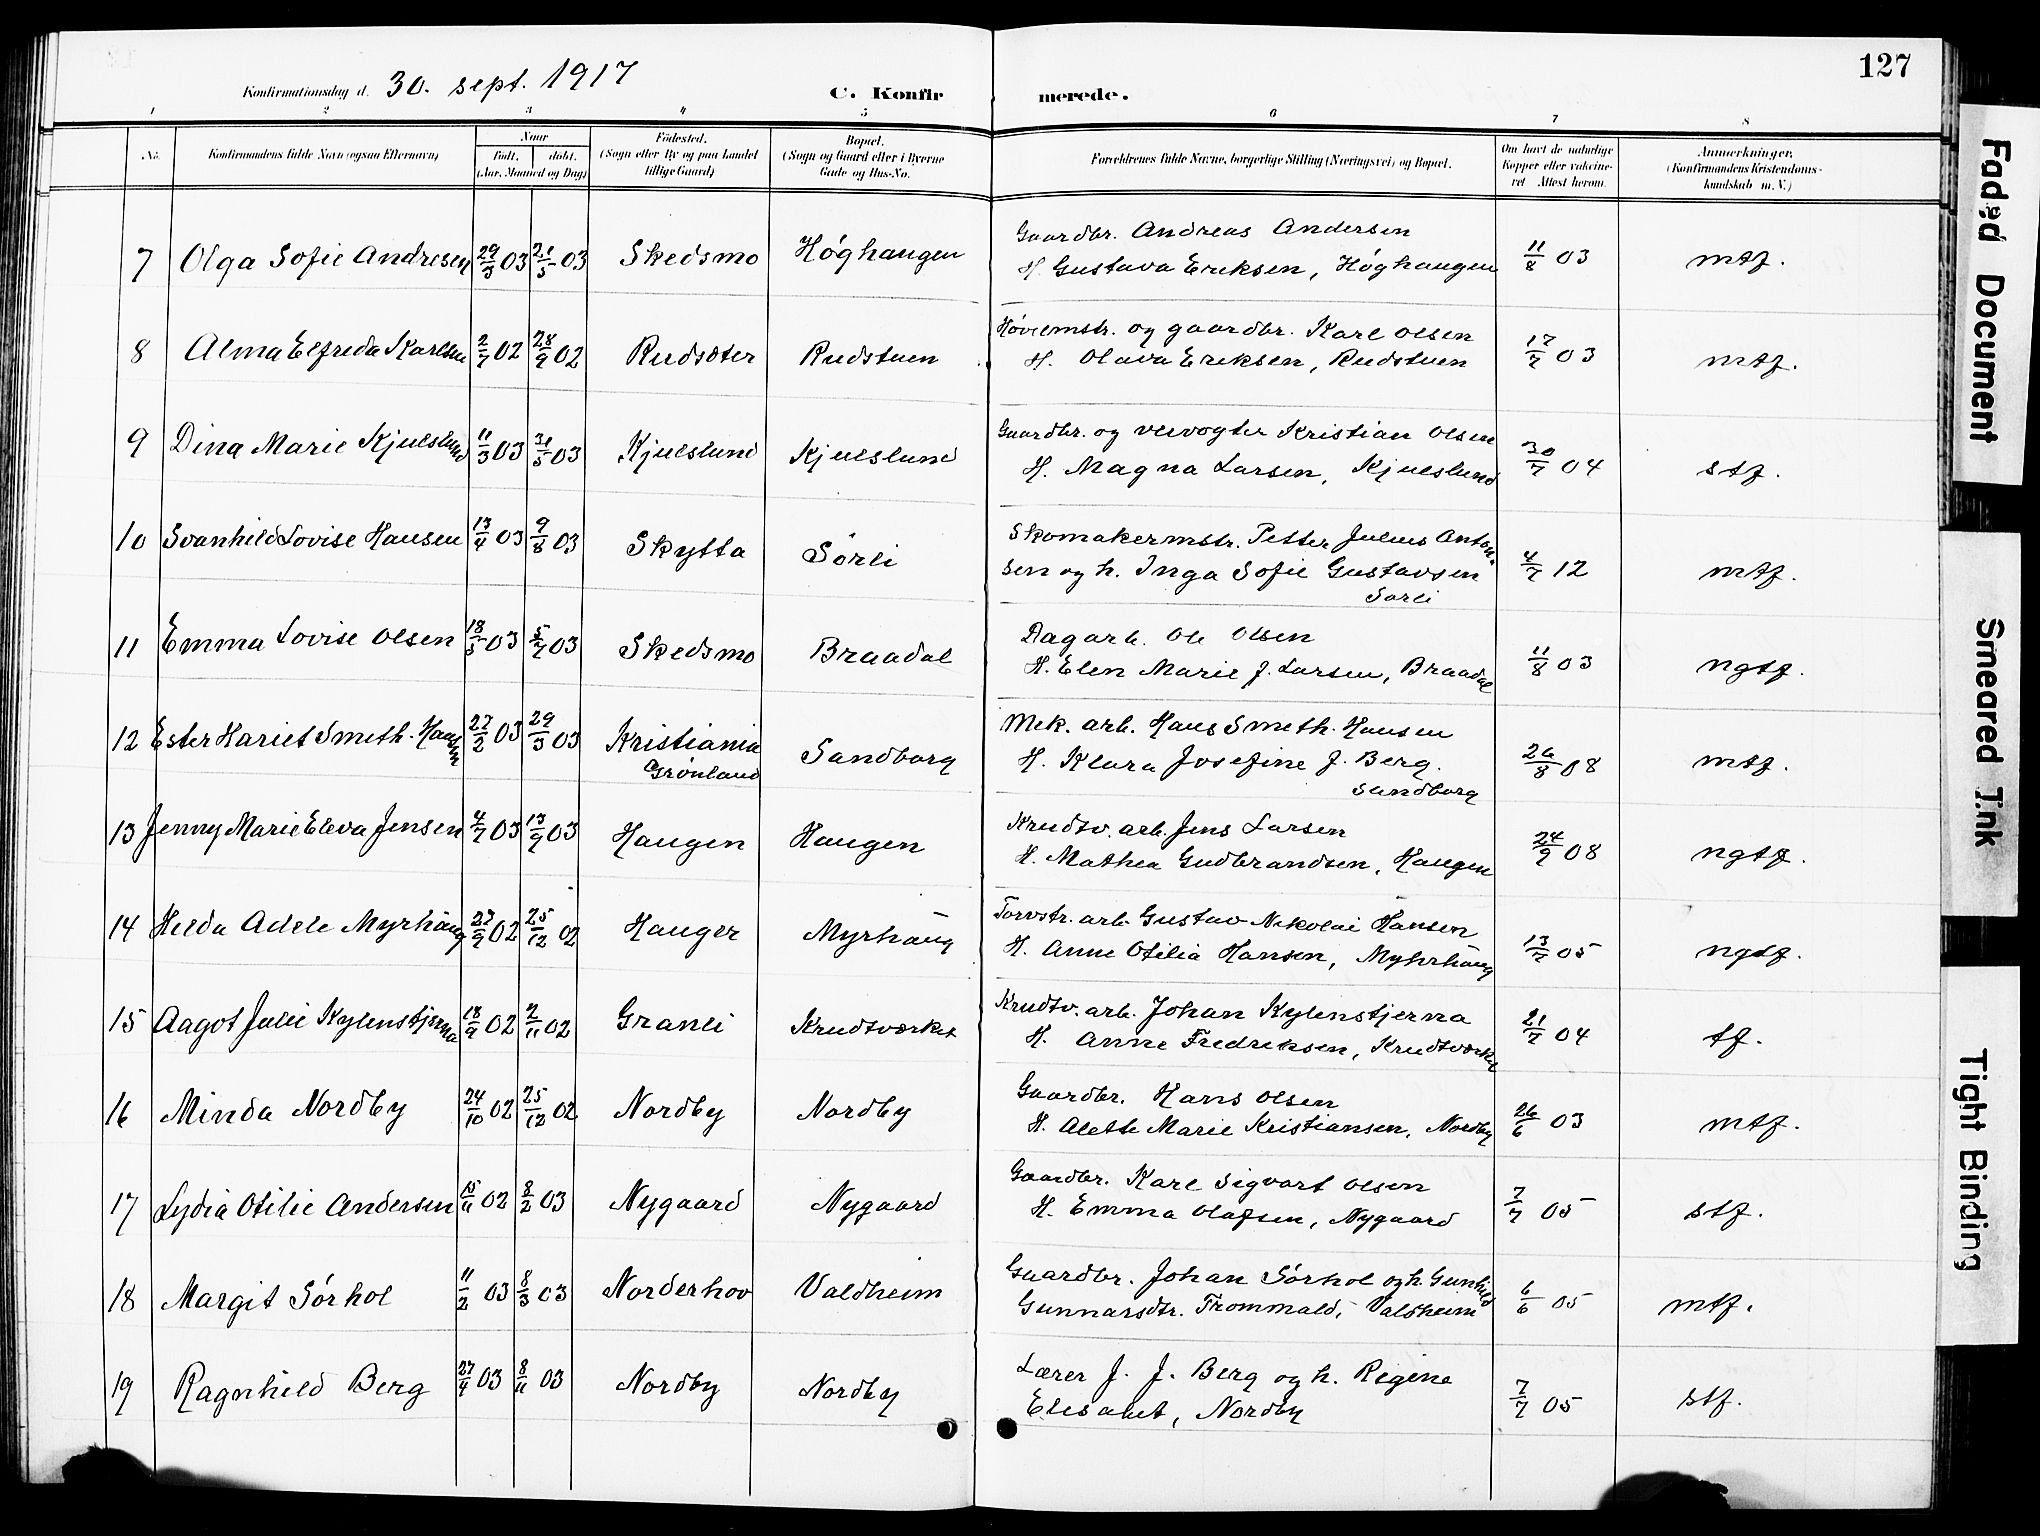 127
Konfirmationsdag d. 30. sept. 1917
C. Konfir merede.
1 2 3 4 5 6 7 8
No. Konfirmandens fulde Navn (ogsaa Efternavn) Naar født. døbt. (Aar, Maaned og Dag) Fødested. (Sogn eller By og paa Landet tillige Gaard) Bopæl. (Sogn og Gaard eller i Byerne Gade og Hus-No. Forældrenes fulde Navne, borgerlige Stilling (Næringsvei) og Bopæl. Om havt de naturlige Kopper eller vaccineret Attest herom. Anmærkninger. (Konfirmandens Kristendomskundskab m. V.)
7 Olga Sofie Andresen 29/3 03 21/5 03 Skedsmo Høghaugen Gaardbr. Andreas Andersen
H. Gustava Eriksen, Høghaugen 11/8 03 mtf.
8 Alma Elfreda Karlsen 2/7 02 28/9 02 Rudsæter Rudstuen Høvlemstr. og gaardbr. Karl Olsen
H. Olava Eriksen, Rudstuen 17/7 03 mtf.
9 Dina Marie Kjulslund 11/3 03 31/5 03 Kjulslund Kjulslund Gaardbr. og veivogter Kristian Olsen
H. Magna Larsen, Kjulslund 30/7 04 stf.
10 Svanhild Lovise Hansen 13/4 03 9/8 03 Skytta Sørli Skomakermstr. Petter Julius Anton-
sen og h. Inga Sofie Gustavsen
Sørli 4/7 12 mtf.
11 Emma Lovise Olsen 18/5 03 5/7 03 Skedsmo Braadal Dagarb. Ole Olsen
H. Elen Marie f. Larsen, Braadal 11/8 03 ngtf.
12 Ester Hariet Smeth-Hansen 27/2 03 29/3 03 Kristiania
Grønland Sandborg Mek. arb. Hans Smeth-Hansen
H. Klara Josefine f. Berg.
Sandborg 26/8 08 mtf.
13 Jenny Marie Eleva Jensen 4/7 03 13/9 03 Haugen Haugen Krudtv. arb. Jens Larsen
H. Mathea Gudbrandsen, Haugen 24/9 08 ngtf.
14 Hilda Adele Myrhaug 27/9 02 25/12 02 Hauger Myrhaug Torvstr. arb. Gustav Nikolai Hansen
H. Anne Otilia Hansen, Myhrhaug 13/7 05 ngtf.
15 Aagot Julie Kylenstjerna 18/9 02 2/11 02 Granli Krudtværket Krudtv. arb. Johan Kylenstjerna
H. Anne Fredriksen, Krudtværket 21/7 04 tf.
16 Minda Nordby 24/10 02 25/12 02 Nordby Nordby Gaardbr. Hans Olsen
H. Alette Marie Kristiansen, Nordby 26/6 03 mtf.
17 Lydia Otilie Andersen 15/11 02 8/2 03 Nygaard Nygaard Gaardbr. Karl Sigvart Olsen
H. Emma Olafsen, Nygaard 7/7 05 stf.
18 Margit Sørhol 11/2 03 8/3 03 Norderhov Valdheim Gaardbr. Johan Sørhol og h. Gunhild
Gunnarsdtr. Trommald, Valdheim 6/6 05 mtf.
19 Ragnhild Berg 27/4 03 8/11 03 Nordby Nordby Lærer J. J. Berg og h. Regine
Elisabet, Nordby 7/7 05 stf.
Faded Document
Smeared Ink
Tight Binding